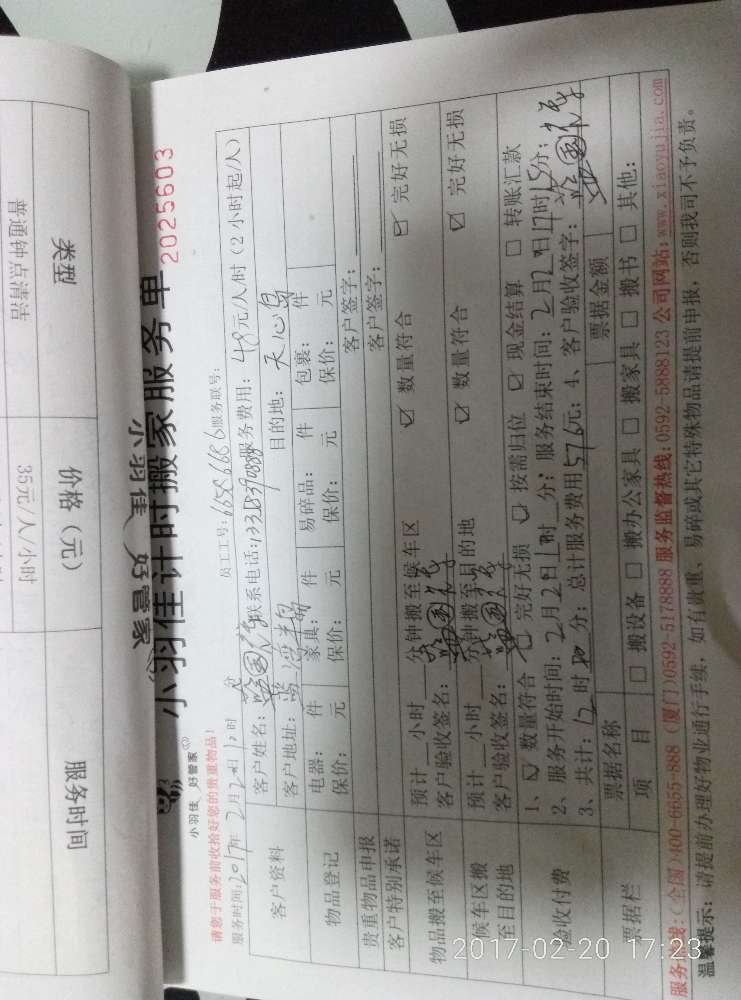 类型
价格（元）
服务时间
普通钟点清洁
35元/人/小时
小羽佳 好管家
小羽佳 好管家
小羽佳计时搬家服务单
2025603
请您于服务前收拾好您的贵重物品！
员工工号： 服务联号：
服务时间：2017年2月20日 时
客户资料
客户姓名： 联系电话： 服务费用：48元/人/时（2小时起/人）
客户地址： 目的地：天心岛
物品登记
电器： 件 家具： 件 易碎品： 件 包裹： 件
保价： 元 保价： 元 保价： 元 保价： 元
贵重物品申报 客户签字：
客户特别承诺 客户签字：
物品搬至候车区
预计 小时 分钟搬至候车区 ☑ 数量符合 ☑ 完好无损
客户验收签名：
候车区搬至目的地
预计 小时 分钟搬至目的地 ☑ 数量符合 ☑ 完好无损
客户验收签名：
验收付费
1、☑ 数量符合 ☑ 完好无损 ☑ 按需归位 ☑ 现金结算 □ 转账汇款
2、服务开始时间：2月20日 时 分；服务结束时间：2月20日17时15分；
3、共计：12时 分；总计服务费用576元；4、客户验收签字：
票据栏
票据名称 票据金额
项 目 □ 搬设备 □ 搬办公家具 □ 搬家具 □ 搬书 □ 其他：
服务热线：（全国）400-6655-888 （厦门）0592-5178888 服务监督热线：0592-5888123 公司网站：www.xiaoyujia.com
温馨提示：请提前办理好物业通行手续，如有贵重、易碎或其它特殊物品请提前申报，否则我司不予负责。
2017-02-20 17:23